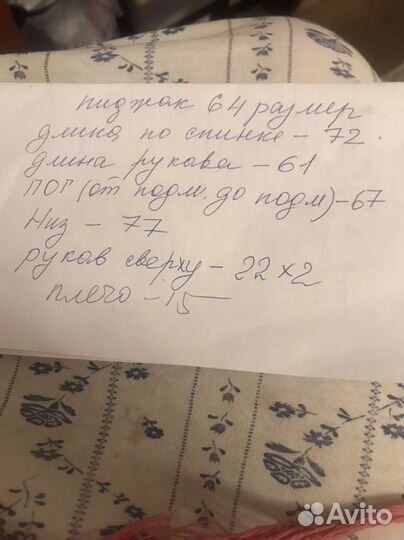 пиджак 64 размер
длина по спинке - 72.
длина рукава - 61
ПОГ (от подм. до подм) - 67
Низ - 77
рукав сверху - 22 х 2
плечо - 15
Avito